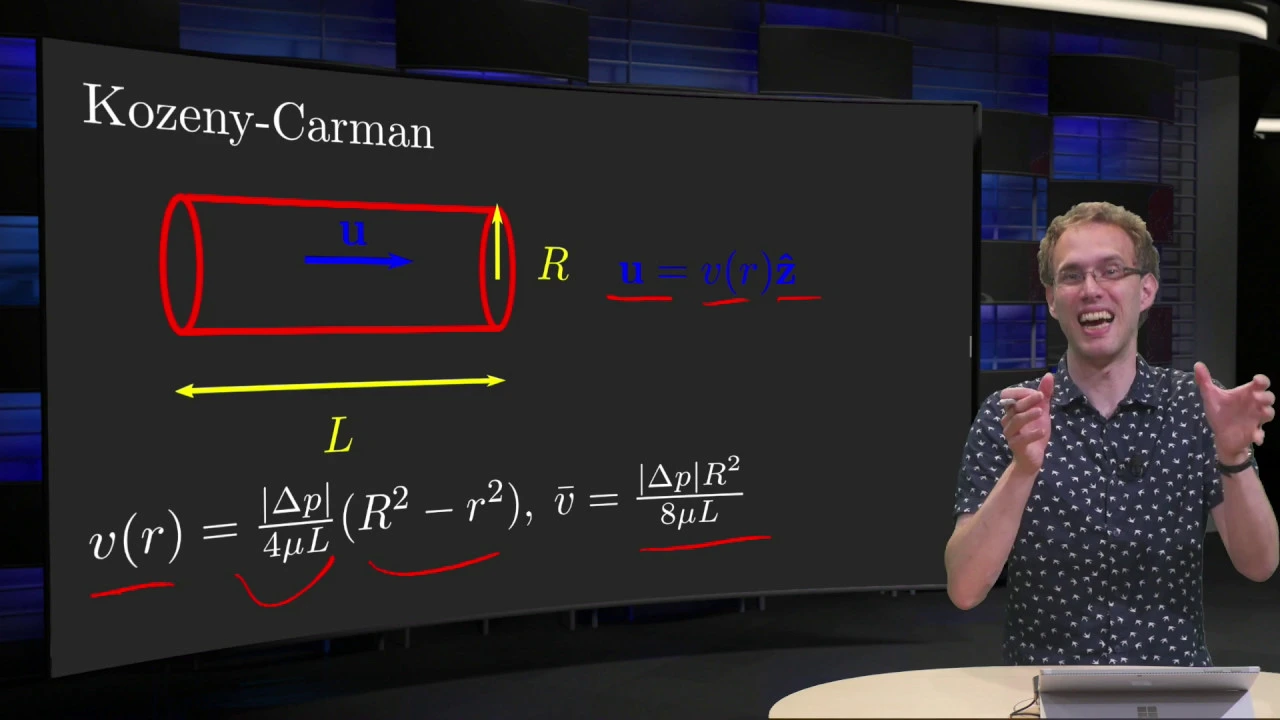 Kozeny-Carman
u
R
u = v(r)ẑ
L
v(r) = |Δp|/4μL (R² − r²), v̄ = |Δp|R²/8μL